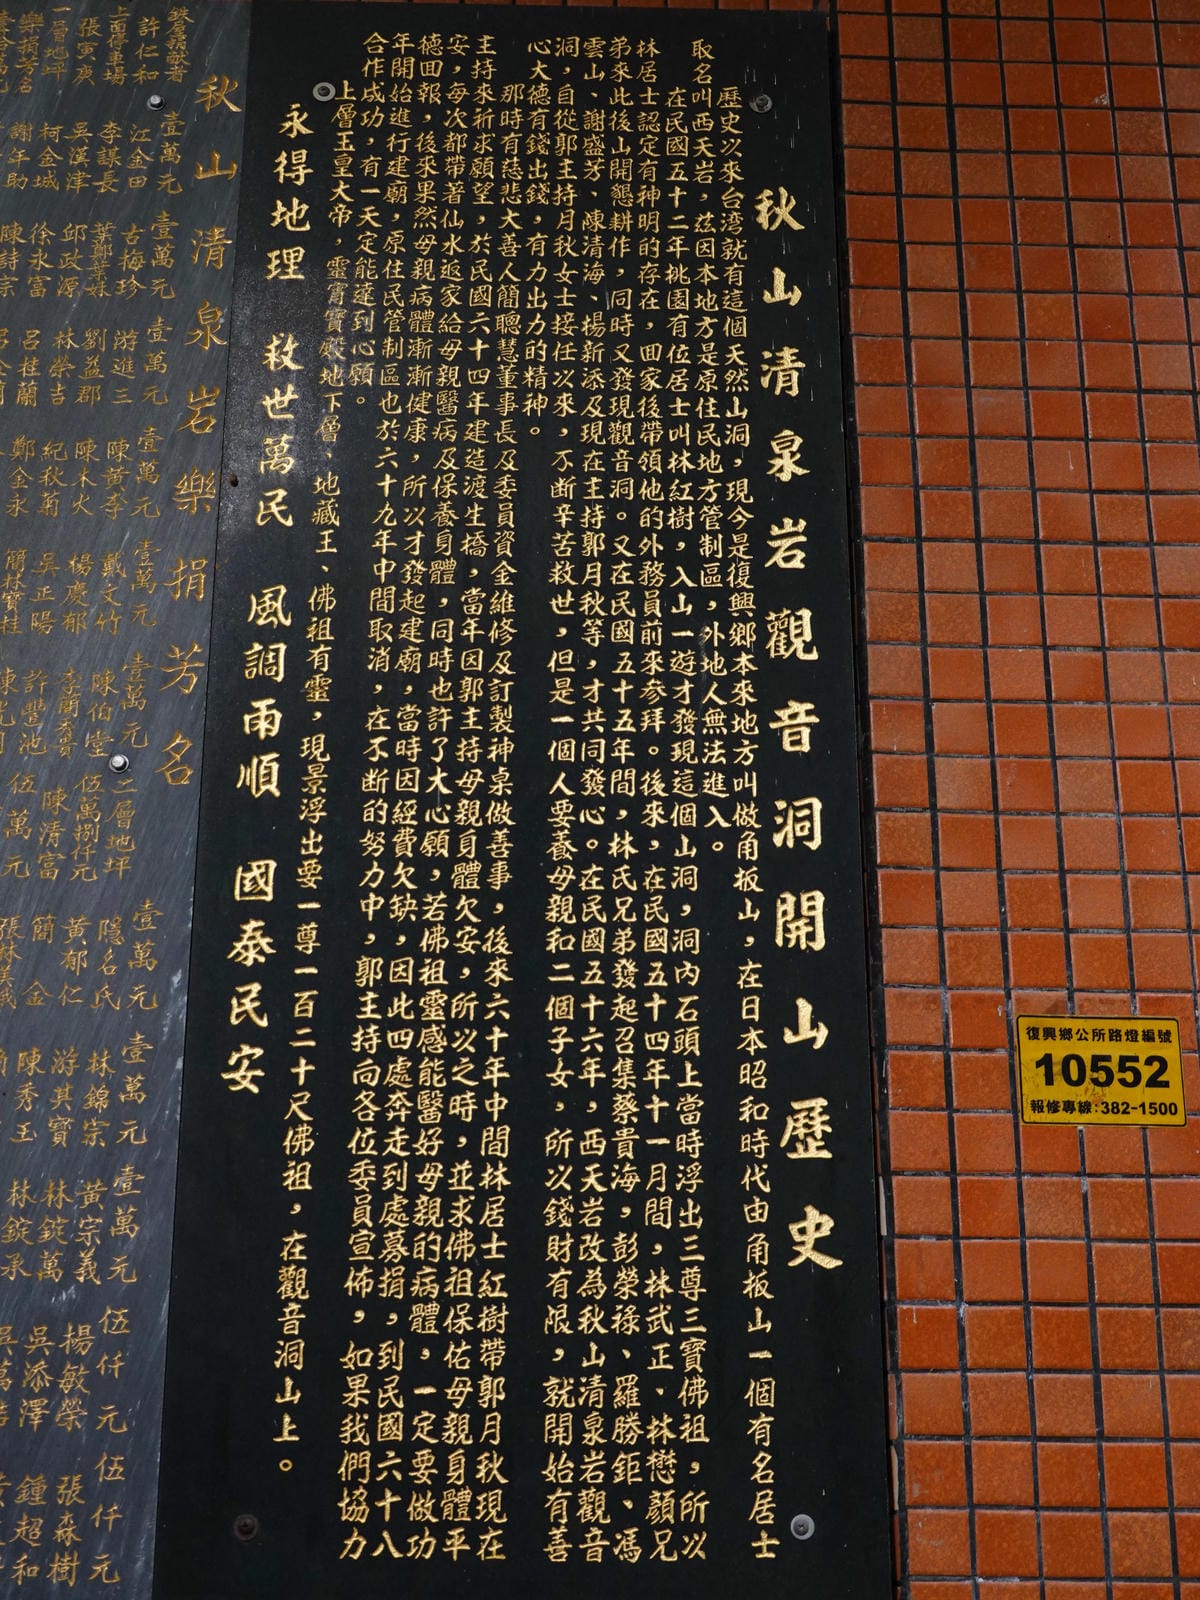 秋山清泉岩觀音洞開山歷史
歷史以來台湾就有這個天然山洞，現今是復興鄉本來地方叫做角板山，在日本昭和時代由角板山一個有名居士
取名叫西天岩，茲因本地方是原住民地方管制區，外地人無法進入。
在民國五十二年桃園有位居士叫林紅樹，入山一遊才發現這個山洞，洞內石頭上當時浮出三尊三寶佛祖，所以
林居士認定有神明的存在，回家後帶領他的外務員前來参拜。後來，在民國五十四年十一月間，林武正、林懋顏兄
弟來此後山開懇耕作，同時又發現觀音洞。又在民國五十五年間，林氏兄弟發起召集蔡貴海，彭榮祿、羅勝鉅、馮
雲山、謝盛芳、陳清海、楊新添及現在主持郭月秋等，才共同發心。在民國五十六年，西天岩改為秋山清泉岩觀音
洞，自從郭主持月秋女士接任以來，不斷辛苦救世，但是一個人要養母親和二個子女，所以錢財有限，就開始有善
心大德有錢出錢，有力出力的精神。
那時有慈悲大善人簡聰慧董事長及委員資金維修及訂製神桌做善事，後來六十年中間林居士紅樹帶郭月秋現在
主持來祈求願望，於民國六十四年建造渡生橋，當年因郭主持母親身體欠安，所以之時，並求佛祖保佑母親身體平
安，每次都帶著仙水返家給母親醫病及保養身體，同時也許了大心願，若佛祖靈感能醫好母親的病體，一定要做功
德回報，後來果然母親病體漸漸健康，所以才發起建廟，當時因經費欠缺，因此四處奔走到處募捐，到民國六十八
年開始進行建廟，原住民管制區也於六十九年中間取消，在不斷的努力中，郭主持向各位委員宣佈，如果我們協力
合作成功，有一天定能達到心願。
上層玉皇大帝，靈霄寶殿地下層、地藏王、佛祖有靈，現景浮出要一尊一百二十尺佛祖，在觀音洞山上。
永得地理 救世萬民 風調雨順 國泰民安
復興鄉公所路燈編號
10552
報修專線:382-1500
秋山清泉岩樂捐芳名
壹萬元 壹萬元 壹萬元 壹萬元 壹萬元 壹萬元 二層地坪 壹萬元 壹萬元 壹萬元 伍仟元 伍仟元
許仁和 江金田 古梅珍 游進三 陳黃李 戴文竹 陳伯堂 伍萬捌仟元 隱名氏 林錦宗 黃宗義 楊敏榮 張森樹
上面停車場 張寅庚 李謀長 邱政源 劉益郡 陳木火 楊慶郁 陳清富 黃郁仁 游其寶 林錠萬 吳添澤 鍾超和
一層地坪 吳漢津 徐永富 林榮吉 紀秋菊 吳正陽 許豐池 伍萬元 簡金 陳秀玉 林錠承
柯金城 呂桂蘭 鄭金永 簡林寶桂